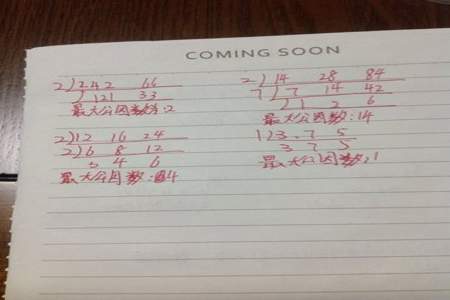 COMING SOON
2)242 66
)121 33
最大公因数:2
2)12 16 24
2)6 8 12
3 4 6
最大公因数:4
2)14 28 84
7)7 14 42
)1 2 6
最大公因数:14
1)3 7 5
3 7 5
最大公因数:1